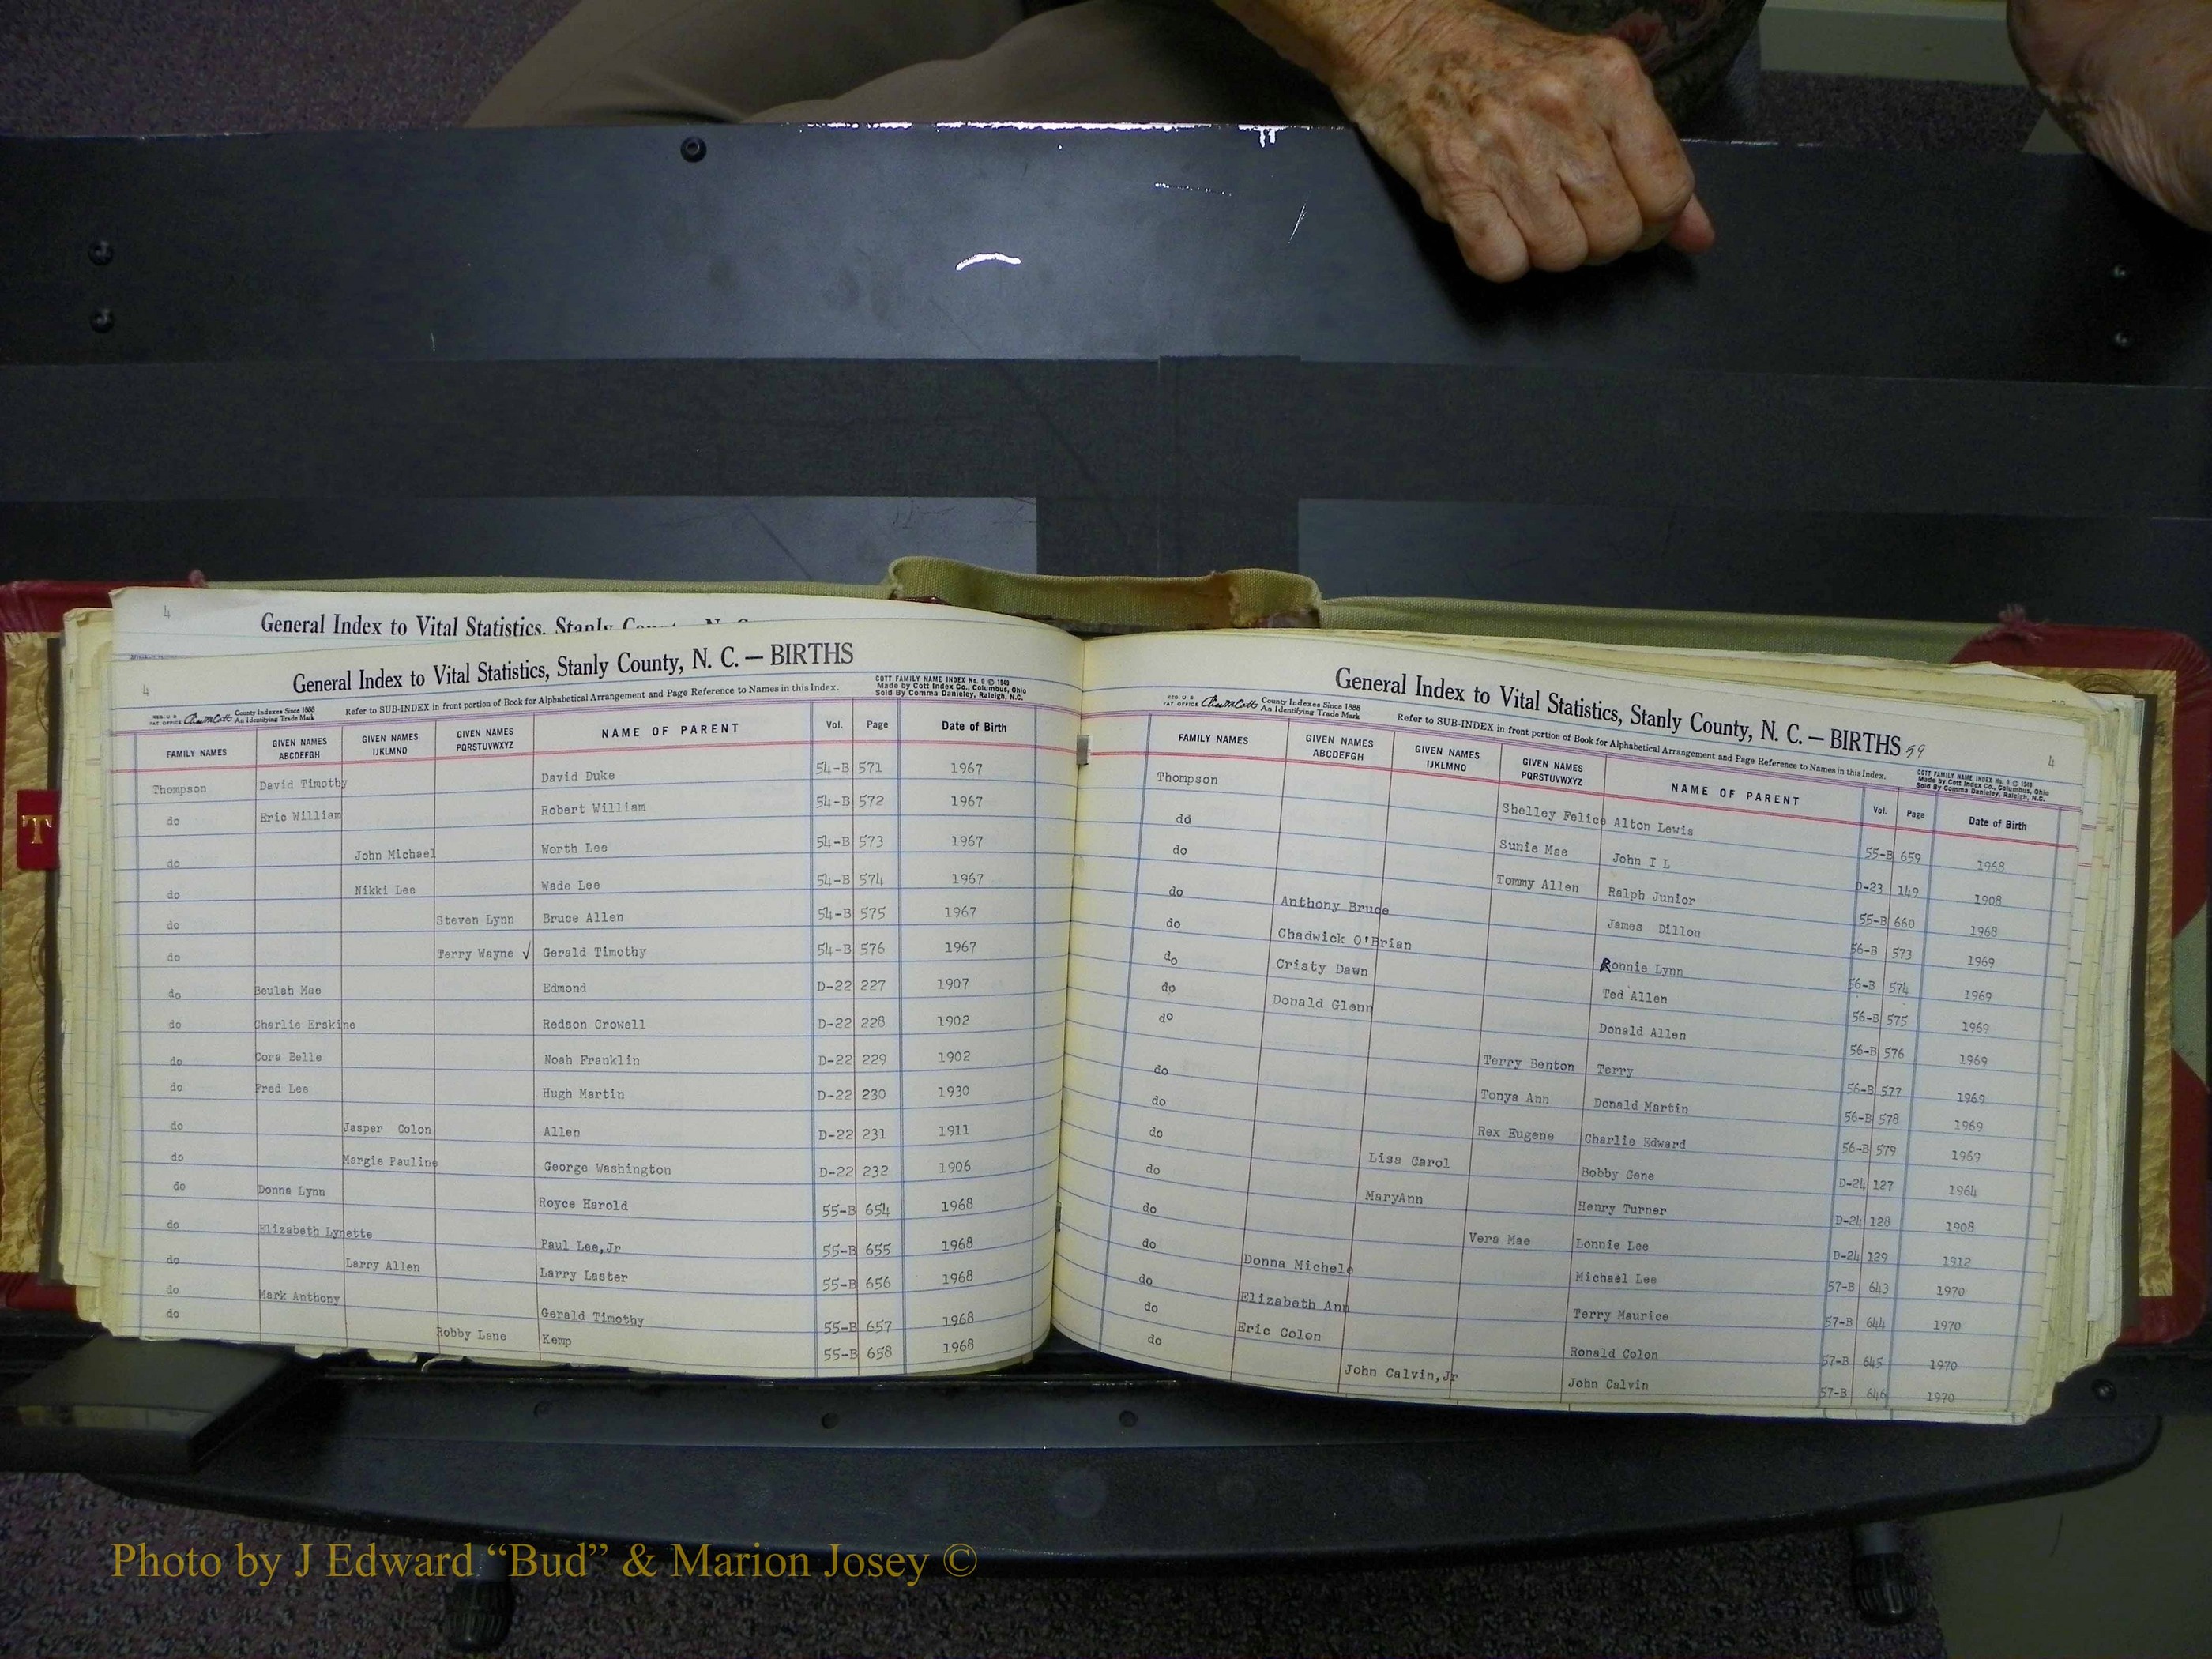 4
General Index to Vital Statistics, Stanly County, N. C.
4
General Index to Vital Statistics, Stanly County, N. C. — BIRTHS
REG. U S PAT OFFICE County Indexes Since 1888 An Identifying Trade Mark
Refer to SUB-INDEX in front portion of Book for Alphabetical Arrangement and Page Reference to Names in this Index.
COTT FAMILY NAME INDEX No. 9 © 1949
Made by Cott Index Co., Columbus, Ohio
Sold By Comma Danieley, Raleigh, N.C.
FAMILY NAMES GIVEN NAMES ABCDEFGH GIVEN NAMES IJKLMNO GIVEN NAMES PQRSTUVWXYZ NAME OF PARENT Vol. Page Date of Birth
Thompson David Timothy David Duke 54-B 571 1967
do Eric William Robert William 54-B 572 1967
do John Michael Worth Lee 54-B 573 1967
do Nikki Lee Wade Lee 54-B 574 1967
do Steven Lynn Bruce Allen 54-B 575 1967
do Terry Wayne ✓ Gerald Timothy 54-B 576 1967
do Beulah Mae Edmond D-22 227 1907
do Charlie Erskine Redson Crowell D-22 228 1902
do Cora Belle Noah Franklin D-22 229 1902
do Fred Lee Hugh Martin D-22 230 1930
do Jasper Colon Allen D-22 231 1911
do Margie Pauline George Washington D-22 232 1906
do Donna Lynn Royce Harold 55-B 654 1968
do Elizabeth Lynette Paul Lee,Jr 55-B 655 1968
do Larry Allen Larry Laster 55-B 656 1968
do Mark Anthony Gerald Timothy 55-B 657 1968
do Robby Lane Kemp 55-B 658 1968
General Index to Vital Statistics, Stanly County, N. C. — BIRTHS 59
4
REG. U S PAT OFFICE County Indexes Since 1888 An Identifying Trade Mark
Refer to SUB-INDEX in front portion of Book for Alphabetical Arrangement and Page Reference to Names in this Index.
COTT FAMILY NAME INDEX No. 9 © 1949
Made by Cott Index Co., Columbus, Ohio
Sold By Comma Danieley, Raleigh, N.C.
FAMILY NAMES GIVEN NAMES ABCDEFGH GIVEN NAMES IJKLMNO GIVEN NAMES PQRSTUVWXYZ NAME OF PARENT Vol. Page Date of Birth
Thompson Shelley Felice Alton Lewis 55-B 659 1968
do Sunie Mae John I L D-23 149 1908
do Tommy Allen Ralph Junior 55-B 660 1968
do Anthony Bruce James Dillon 56-B 573 1969
do Chadwick O'Brian Ronnie Lynn 56-B 574 1969
do Cristy Dawn Ted Allen 56-B 575 1969
do Donald Glenn Donald Allen 56-B 576 1969
do Terry Benton Terry 56-B 577 1969
do Tonya Ann Donald Martin 56-B 578 1969
do Rex Eugene Charlie Edward 56-B 579 1969
do Lisa Carol Bobby Gene D-24 127 1964
do MaryAnn Henry Turner D-24 128 1908
do Vera Mae Lonnie Lee D-24 129 1912
do Donna Michele Michael Lee 57-B 643 1970
do Elizabeth Ann Terry Maurice 57-B 644 1970
do Eric Colon Ronald Colon 57-B 645 1970
do John Calvin,Jr John Calvin 57-B 646 1970
T
Photo by J Edward “Bud” & Marion Josey ©